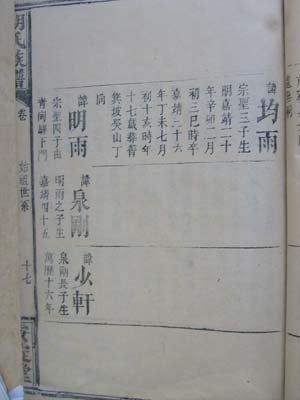 諱均雨
宗聖三子生
明嘉靖二十
年辛卯二月
初三巳時卒
嘉靖二十六
年丁未七月
初十亥時年
十七歲葬菁
箕坡癸山丁
向
諱明雨
宗聖四子由
青向
諱泉剛
明雨之子生
嘉靖四十五
諱少軒
泉剛長子生
萬歷十六年
胡氏族譜
卷
始祖世系
十七